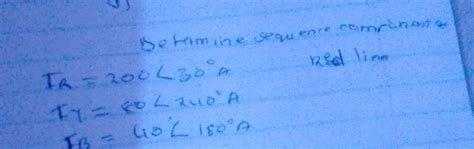 Determine sequence component of
red line
IR = 200∠30°A
IY = 80∠240°A
IB = 40∠180°A